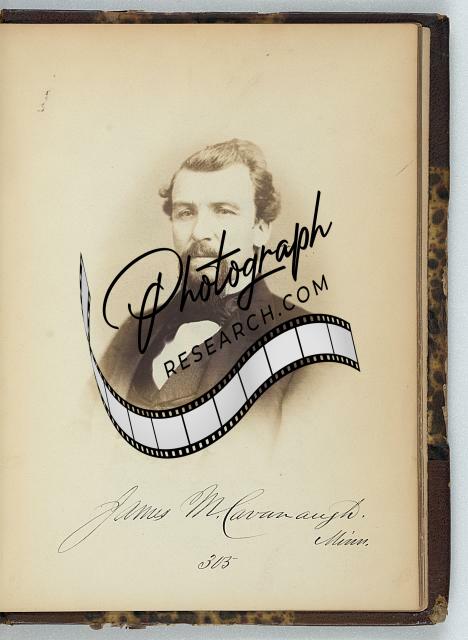 Photograph
RESEARCH.COM
James M. Cavanaugh.
Minn.
305